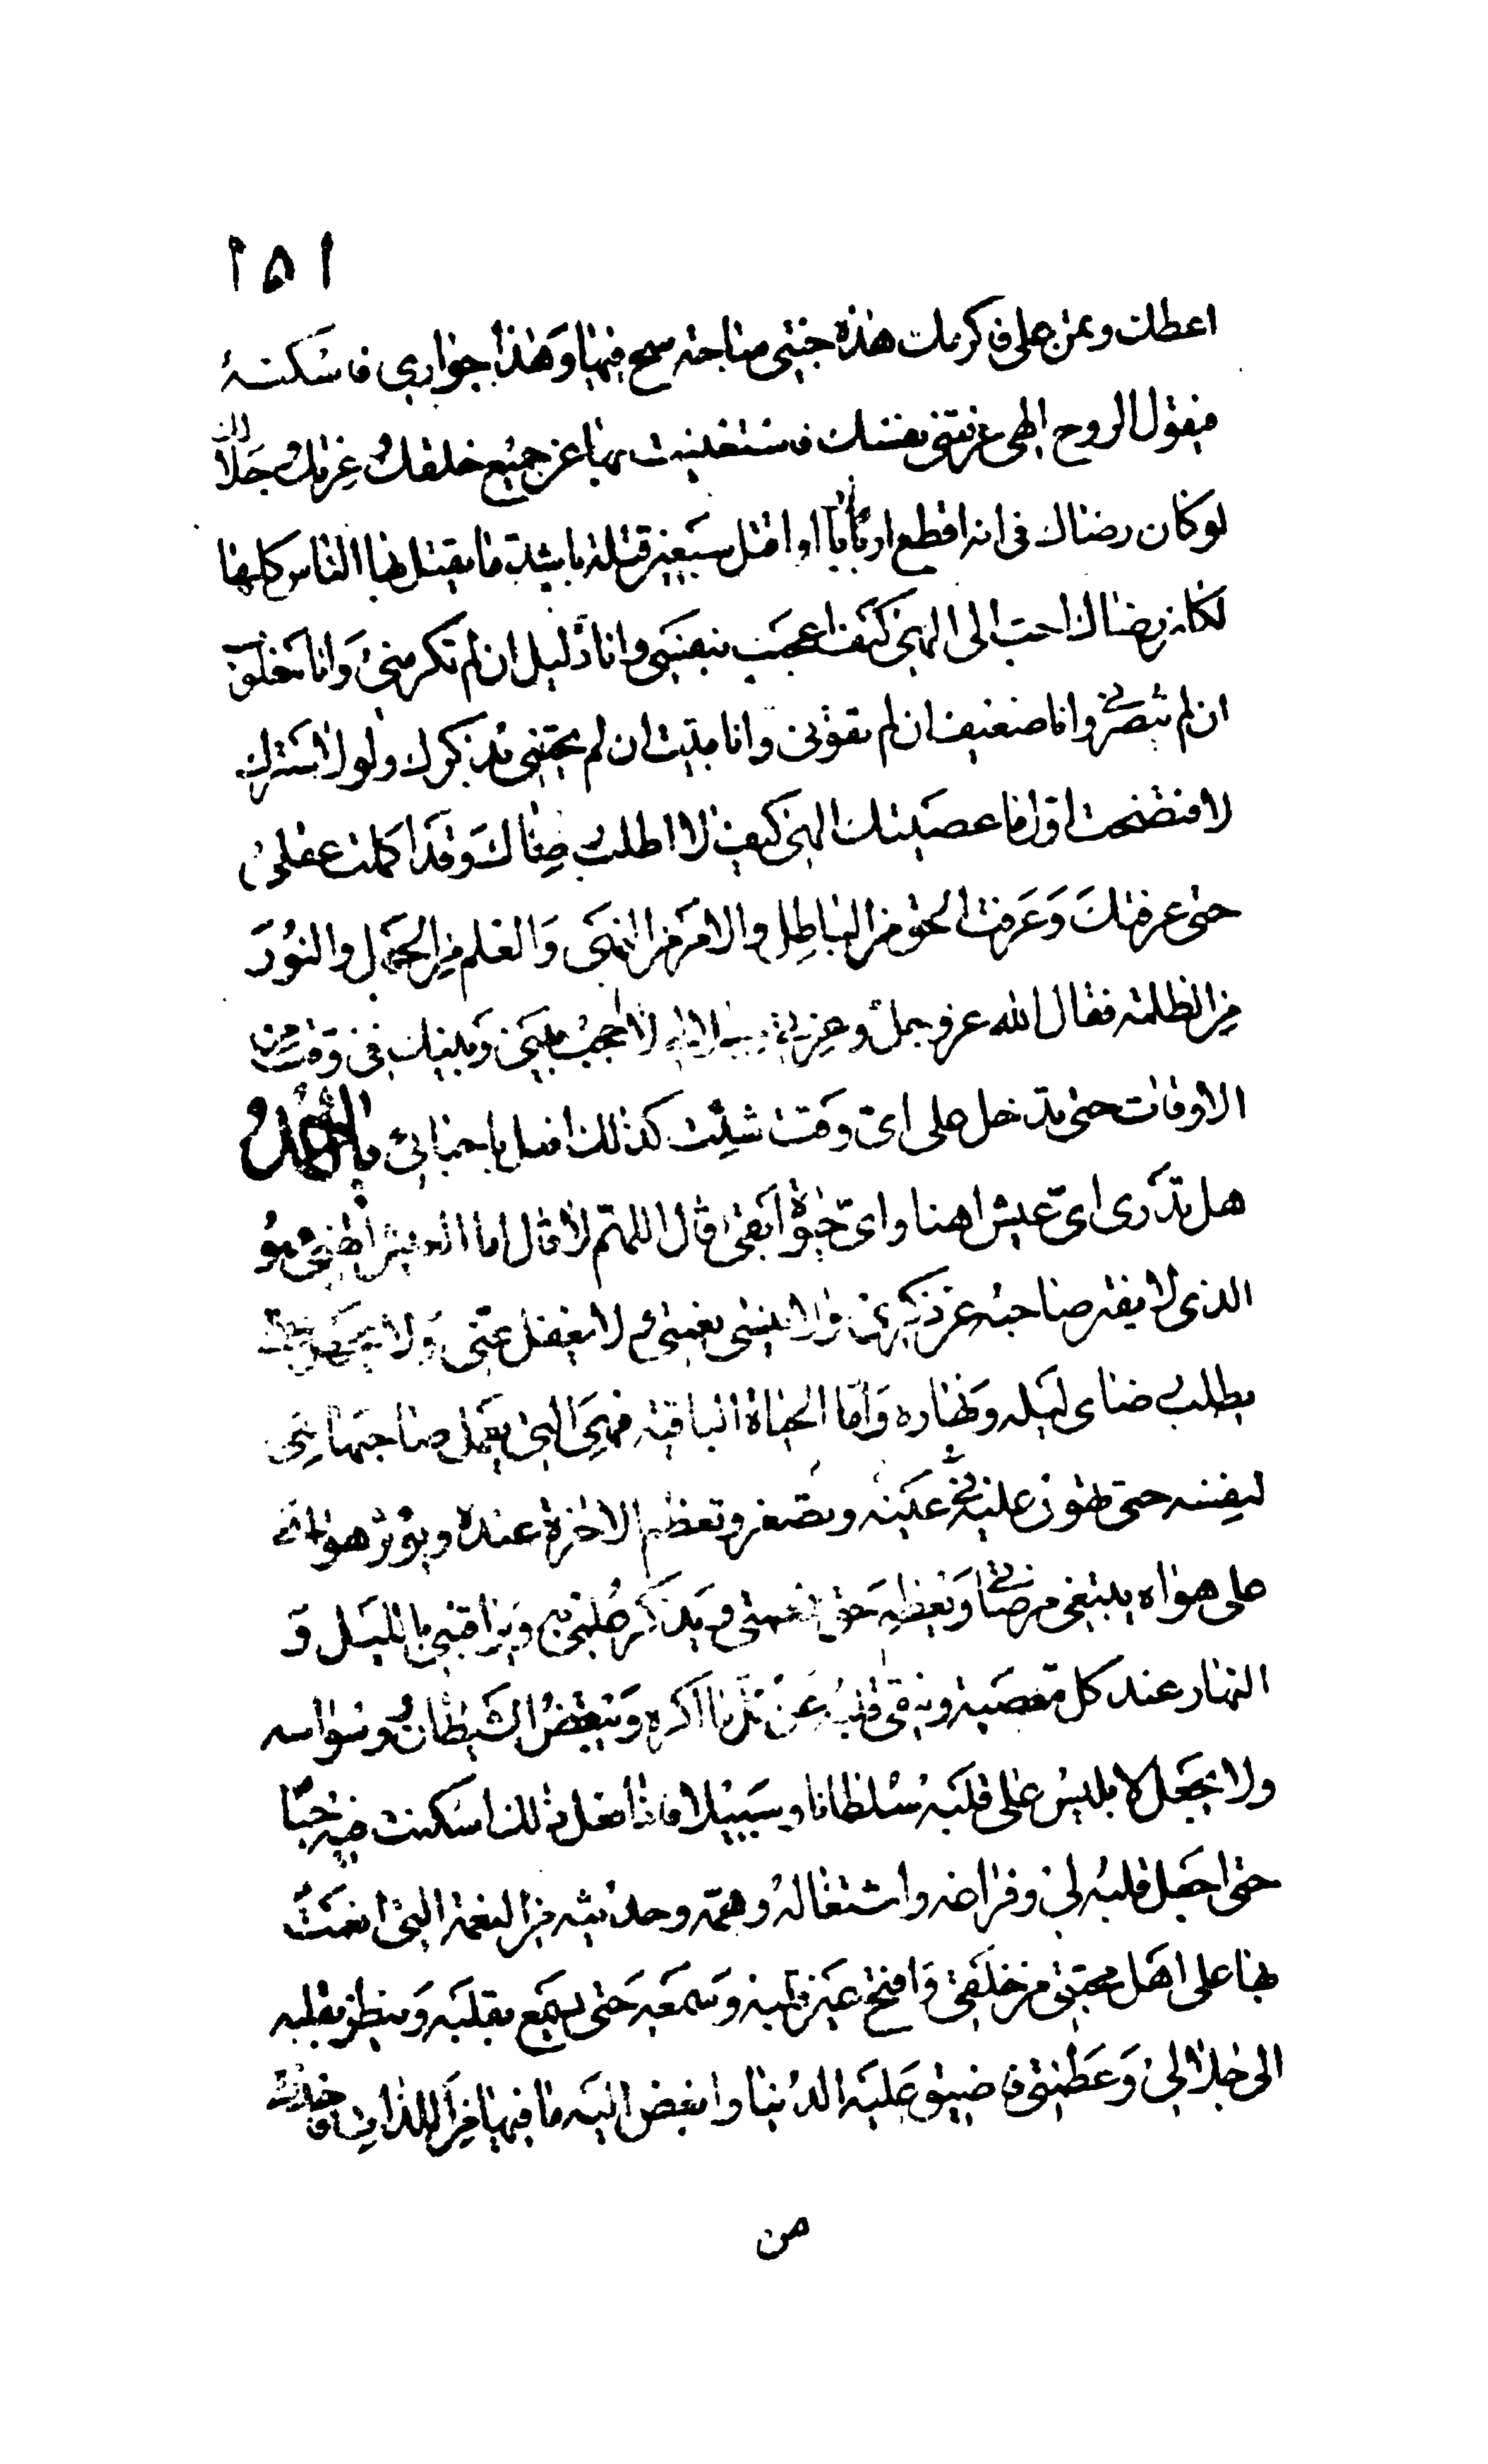 ١٥١
اعطك وتمن على فاكرمك هذه جنتى مباحة سح فيها وهذا جوارى فاسكنه
فيقول الروح الهى عرفتنى نفسك فاستغنيت بها عن جميع خلقك وعزتك وجلالك
لو كان رضاك فى ان اقطع اربا اربا او اقتل سبعين قتلة باشد ما يقتل بها الناس كلها
لكان رضاك احب الى الهى كيف اعجب بنفسى وانا ذليل ان لم تكرمنى وانا مغلوب
ان لم تنصرنى وانا ضعيف ان لم تقونى وانا ميت ان لم تحيينى بذكرك ولولا سترك
لافتضحت اول ما عصيتك الهى كيف لا اطلب رضاك وقد اكملت عقلى
حتى عرفتك وعرفت الحق من الباطل والامر من النهى والعلم من الجهل والنور
من الظلمة فقال الله عز وجل وعزتى وجلالى لا احجب بينى وبينك فى وقت من
الاوقات حتى تدخل على اى وقت شئت كذلك افعل باحبائى يا احمد
هل تدرى اى عيش اهنا واى حيوة ابقى قال اللهم لا قال اما العيش الهنى هو
الذى لا يفتر صاحبه عن ذكرى ولا ينسى نعمتى و لا يغفل عنى ولا يجهل حقى
يطلب رضاى ليله ونهاره واما الحياة الباقية فهى التى يعمل صاحبها
لنفسه حتى تهون عليه الدنيا عينه وتصغر وتعظم الاخرة عنده ويؤثر هواى
على هواه يبتغى مرضاتى ويعظم حق نعمتى و يذكر علمى به ويراقبنى بالليل و
النهار عند كل معصية وينقى قلبه عن كل ما اكره ويبغض الشيطان وسواسه
ولا يجعل لابليس على قلبه سلطانا وسبيلا فاذا فعل ذلك اسكنت فيه حبا
حتى اجعل قلبه لى وفراغه واشتغاله وهمه وحديثه من النعمة التى انعمت
بها على اهل محبتى من خلقى وافتح عين قلبه وسمعه حتى يسمع بقلبه وينظر بقلبه
الى جلالى وعظمتى فاضيق عليه الدنيا وابغض اليه ما فيها من اللذات
من